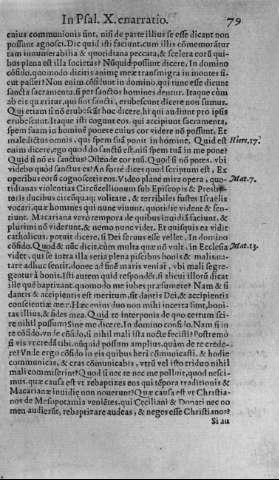 In Psal. X. enarratio. 79
enius communionis sint, nisi de parte illius se esse dicant non
possint agnosci. Dic quid isti facunt, cum illis cōmemoratur
tam innumerabilia & quotidiana peccata, & scelera eorū qui-
bus plena est illa societas? Nūquid possunt dicere, In domino
cōfido, quomodo dicitis animę meæ transmigra in montes si-
cut passer? Non enim cōfidunt in domino, qui tunc esse dicunt
sancta sacramenta, si per sanctos homines dentur. Itaque cùm
ab eis quæritur, qui sint sancti, erubescunt dicere nos sumus.
Qui etiam si nō erubescāt hoc dicere, hi qui audiunt pro ipsis
erubescunt. Itaque isti cogunt eos, qui accipiunt sacramenta,
spem suam in homine ponere cuius cor videre nō possunt. Et
maledictus omnis, qui spem suā ponit in homine. Quid est Hiere. 17.
enim dicere, ego quod do sanctū est, nisi spem tuā in me pone?
Quid si nō es sanctus? Ostende cor tuū. Quod si nō potes, vbi
videbo quòd sanctus es? An forte dicet quod scriptum est, Ex
operibus eorū cognoscetis eos? Video planè mira opera, quo- Mat. 7.
tidianas violentias Circūcellionum sub Episcopis & Presby-
teris ducibus circunquaq; volitare, & terribiles fustes Israëles
vocari: quæ homines qui nunc viuunt, quotidie vident & sen-
tiunt. Macariana verò tempora de quibus inuidiā faciunt, &
plurimi nō viderunt, & nemo nunc videt. Et quisquis ea vidit
catholicus, potuit dicere, si Dei seruus esse vellet, In domino
cōfido. Quod & nūc dicit, cùm multa quæ nō vult, in Ecclesia Mat. 13.
videt, qui se intra illa seria plena piscibus bonis & malis nata-
tare adhuc sentit, donec ad finē maris veniat, vbi mali segre-
gentur à bonis. Isti autem quid respondēt, si alicui illorū dicat
ille quē baptizant, quomodo me iubes præsumere? Nam & si
dantis & accipientis est meritum, sit dantis Dei, & accipientis
conscientiæ meæ. Hæc enim duo non mihi incerta sunt, boni-
tas illius, & fides mea. Quid te interponis de quo certum sci-
re nihil possum? Sine me dicere, In domino confido. Nam si in
te cōfido, vnde cōfido, si nihil mali ista nocte fecisti? Postremò
si vis vt credā tibi, nūquid possum amplius, quàm de te crede-
re? Vnde ergo cōfido in eis quibus heri cōmunicasti, & hodie
communicas, & cras cōmunicabis, vtrū vel isto triduo nihil
mali commiserint? Quòd si nec te nec me polluit, quod nesci-
mus, quæ causa est vt rebaptizes eos qui tēpora traditionis &
Macarianæ inuidię non nouerunt? Quæ causa est vt Christia-
nos de Mesopotamia venientes, qui Ceciliani & Donati nec no
men audierunt, rebaptizare audeas, & neges esse Christianos?
Si au